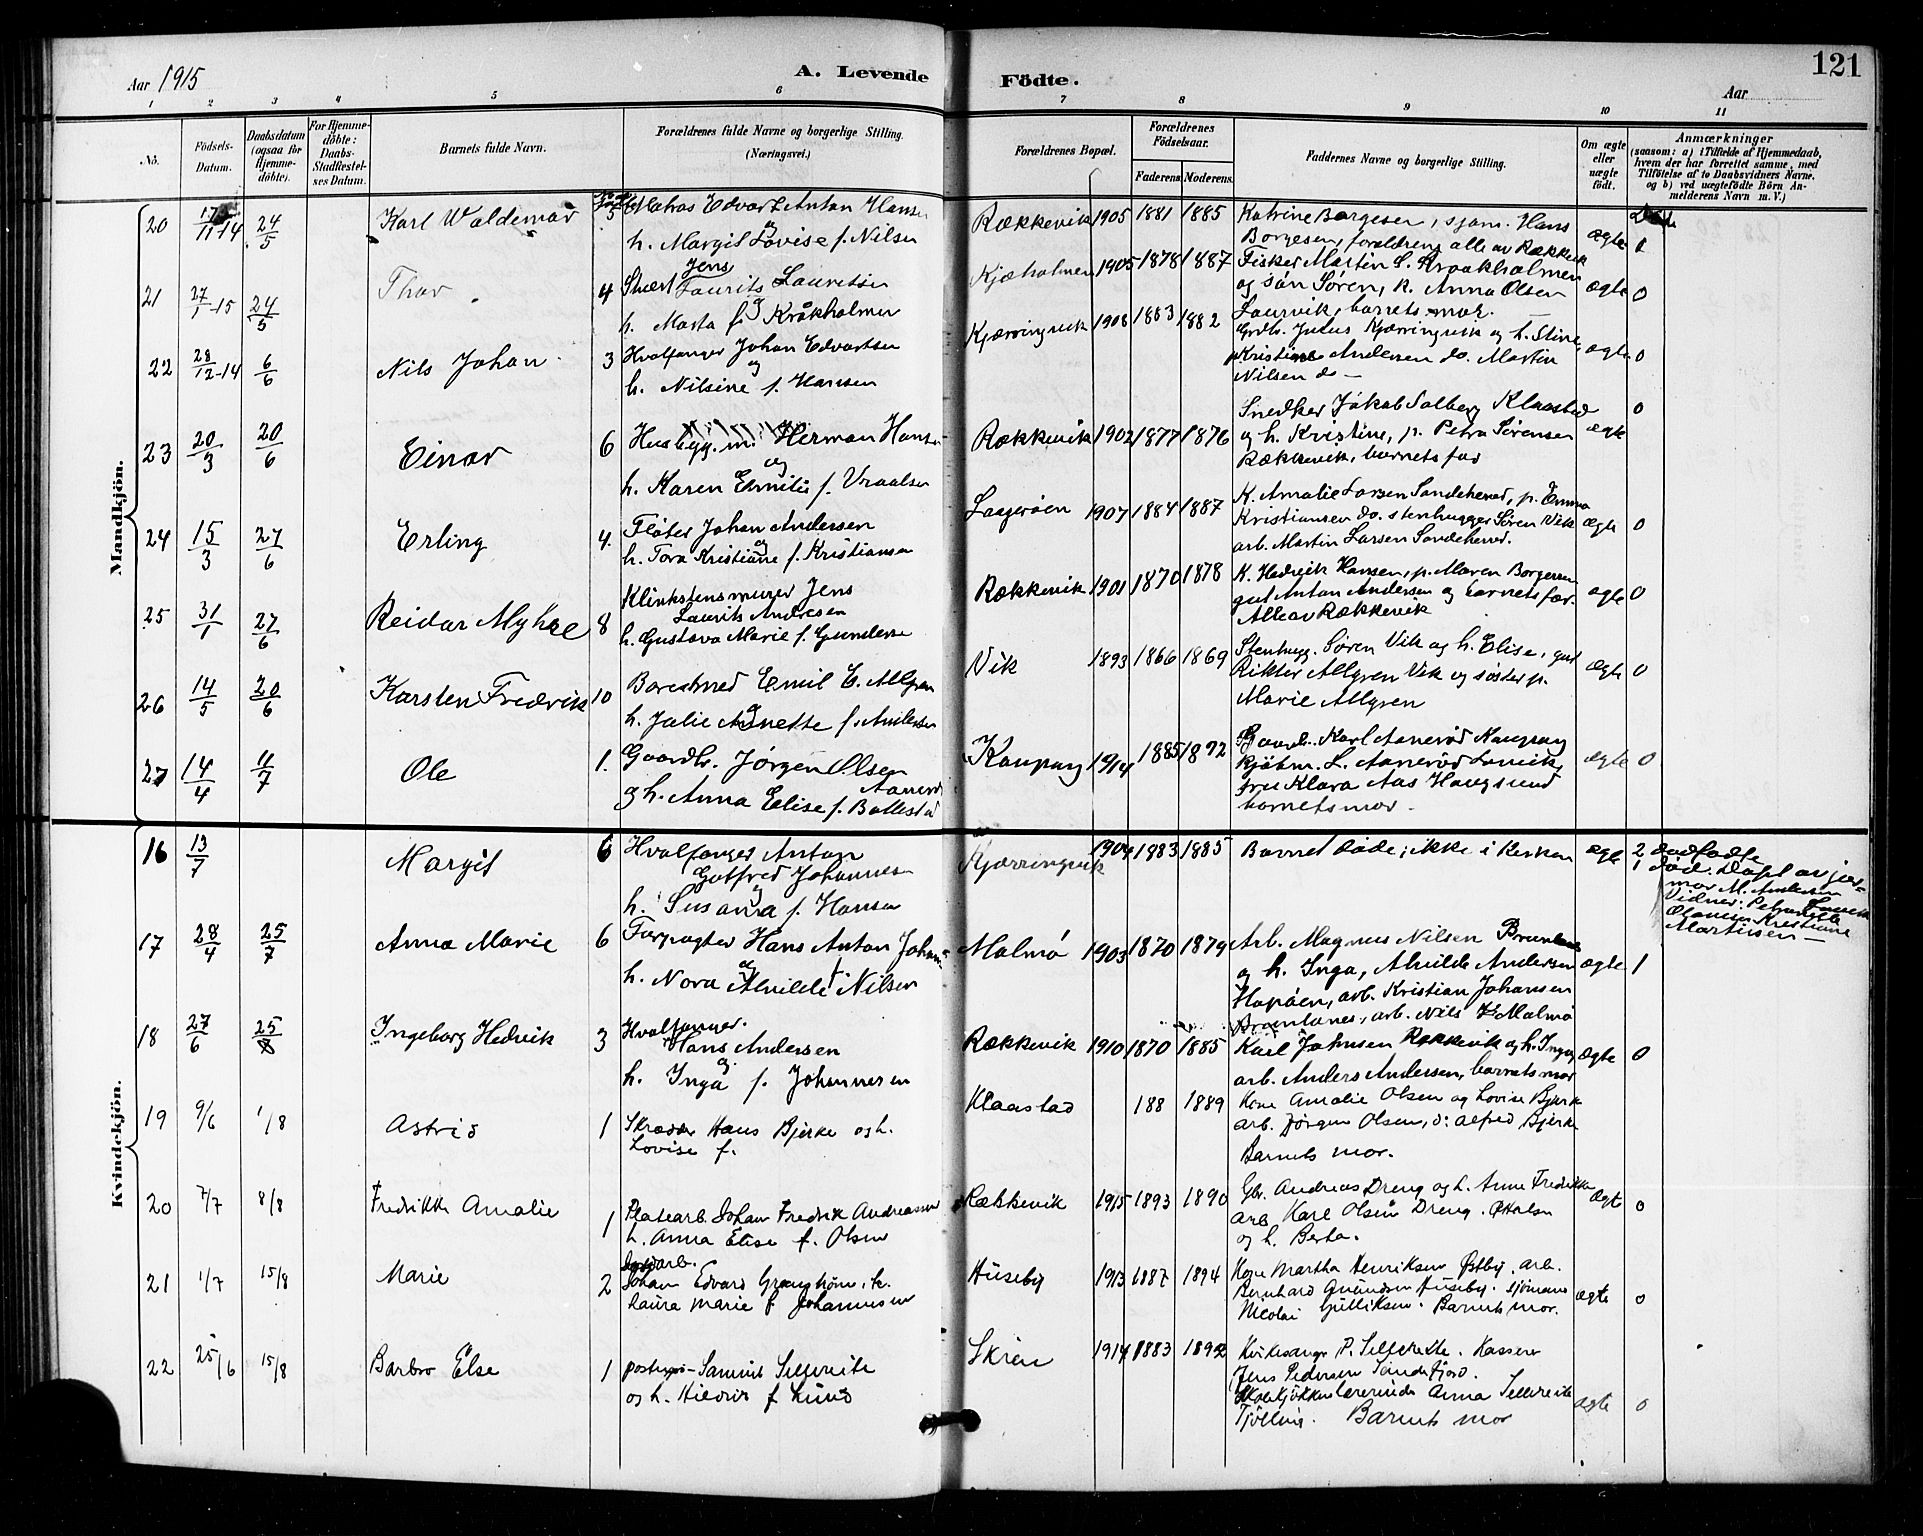 121
Aar 1915
A. Levende
Födte.
Aar
1 2 3 4 5 6 7 8 9 10 11
No.
Födsels-Datum.
Daabsdatum (ogsaa for Hjemme-döbte).
For Hjemme-döbte: Daabs-Stadfæstel-ses Datum.
Barnets fulde Navn.
Forældrenes fulde Navne og borgerlige Stilling.
(Næringsvei.)
Forældrenes Bopæl.
Forældrenes Födselsaar.
Faderens. Moderens.
Faddernes Navne og borgerlige Stilling.
Om ægte eller uægte födt.
Anmærkninger
(saasom: a) i Tilfælde af Hjemmedaab,
hvem der har forrettet samme, med
Tilföielse af to Daabsvidners Navne,
og b) ved uægtefödte Börn An-
melderens Navn m. V.)
Mandkjön.
20 17/11-14 24/5 Karl Waldemar 5 Matros Edvart Anton Hansen
og
h. Margit Lovise f. Nilsen
Rækkevik 1905 1881 1885
Katrine Borgesen, sjøm. Hans
Borgesen, forældrene alle av Rækkevik
ægte 1
21 27/1-15 24/5 Thor 4 Jens
Laurits Lauritsen
og
h. Marta f. Kråkholmen
Kjæholmen 1905 1878 1887
Fisker Martin S. Kraakholmen
og søn Søren, k. Anna Olsen
Laurvik, barnets mor.
ægte 0
22 28/12-14 6/6 Nils Johan 3 Hvalfanger Johan Edvartsen
og
h. Nilsine f. Hansen
Kjærringvik 1908 1883 1882
Grdb. Julius Kjærringvik og h. Stine,
Kristiane Andersen do. Martin
Nilsen do —
ægte 0
23 20/3 20/6 Einar 6 Husbygg.m. Herman Hansen
og
h. Karen Emilie f. Vraalsen
Rækkevik 1902 1877 1876
Snedker Jakob Solberg Klaastad
og h. Kristine, p. Petra Sørensen
Rækkevik, barnets far
ægte 0
24 15/3 27/6 Erling 4. Fløter Johan Andersen
og
h. Tora Kristiane f. Kristiansen
Lagerøen 1907 1884 1887
K. Amalie Larsen Sandeherød, p. Emma
Kristiansen do. stenhugger Søren Vik
arb. Martin Larsen Sandeherød.
ægte 0
25 31/1 27/6 Reidar Myhre 8 Klinkstensmurer Jens
Laurits Andresen
h. Gustava Marie f. Gundersen
Rækkevik 1901 1870 1878
K. Hedevik Hansen, p. Maren Borgersen
gut Anton Andersen og barnets far.
Alle av Rækkevik
ægte 0
26 14/5 20/6 Karsten Fredrik 10 Emil E. Allgren
og
h. Julie Annette f. Andersen
Vik 1893 1866 1869
Stenhugg. Søren Vik og h. Elise, gut
Viktor Allgren Vik og søster p.
Marie Allgren
ægte 0
27 14/4 11/7 Ole 1. Gaardb. Jørgen Olsen
Aanerød
og h. Anna Elise f. Bollestad
Kaupang 1914 1885 1892
Gaardb. Karl Aanerød Kaupang
kjøbm. L. Aanerød Larvik,
fru Klara Aas Haugsund
barnets mor.
ægte 0
Kvindekjön.
16 13/7 Margit 6 Hvalfanger Anton
Gotfred Johannesen
og
h. Susanna f. Hansen
Kjærringvik 1904 1883 1885
Barnet døde; ikke i kirken
ægte 2 dødfødte
1 død. Døpt av jor-
mor M. Andersen
Vidner: Petra
Olausen Kristiane
Martinsen —
17 28/4 25/7 Anna Marie 6 Forpagter Hans Anton Johans.
og
h. Nora Alvilde f. Nilsen
Malmø 1903 1870 1879
Arb. Magnus Nilsen
og h. Inga, Alvilde Andersen
Hapøen, arb. Kristian Johansen
Bramtanes, arb. Nils Malmø
ægte 1
18 27/6 25/8 Ingeborg Hedvik 3 Hvalfanger.
Hans Andersen
og
h. Inga f. Johannesen
Rækkevik 1910 1870 1885
Karl Johnsen Rækkevik og h. Inga
arb. Anders Andersen, barnets mor
ægte 0
19 9/6 1/8 Astrid 1 Skrædder Hans Bjerke og h.
Lovise f.
Klaastad 188 1889
Kone Amalie Olsen og Lovise Bjerke
arb. Jørgen Olsen, d: Alfred Bjerke
Barnets mor.
20 7/7 8/8 Fredrikke Amalie 1 Platearb. Johan Fredrik Andreassen
h. Anna Elise f. Olsen
Rækkevik 1915 1893 1890
Gbr. Andreas Dreng og h. Anne Fredrikke
arb. Karl Olsen Dreng.
og h. Berta.
ægte 0
21 1/7 15/8 Marie 2 Johan Edvard Granstrøm, h.
Laura Marie f Johannesen
Huseby 1913 1887 1894
Kone Martha Henriksen Østby, arb.
Bernhard Gundersen Huseby. sjømann
Nicolai Gulliksen. Barnets mor.
ægte 0
22 25/6 15/8 Barbro Else 1 Samuel Sellereite
og h. Hildur f Lund
Skreia 1914 1883 1892
Kirkesanger P. Sellereite. Kasserer
Jens Pedersen Sandefjord.
Skolekjøkkenlærerinde Anna Sellereite
Tjølling. Barnets mor
ægte 0